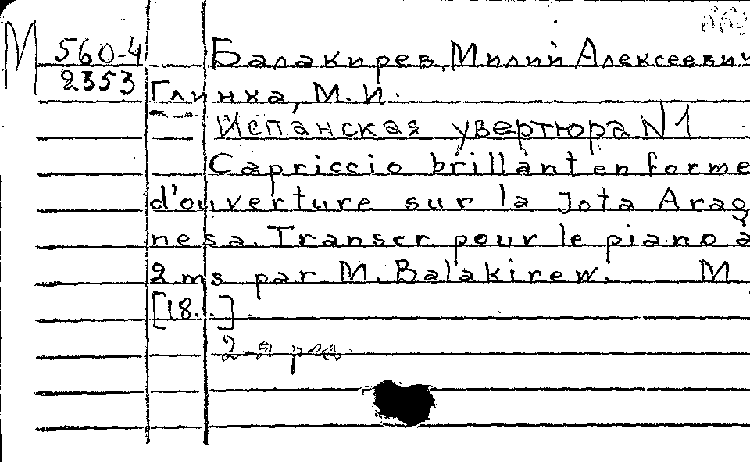 М 560-4 Балакирев, Милий Алексеевич
2353
Глинка, М.И.
Испанская увертюра N1
Capriccio brillant en forme
d'ouverture sur la Jota Arag
nesa. Transcr pour le piano à
2 ms par M. Balakirew. М
[18..]
2-я ред.